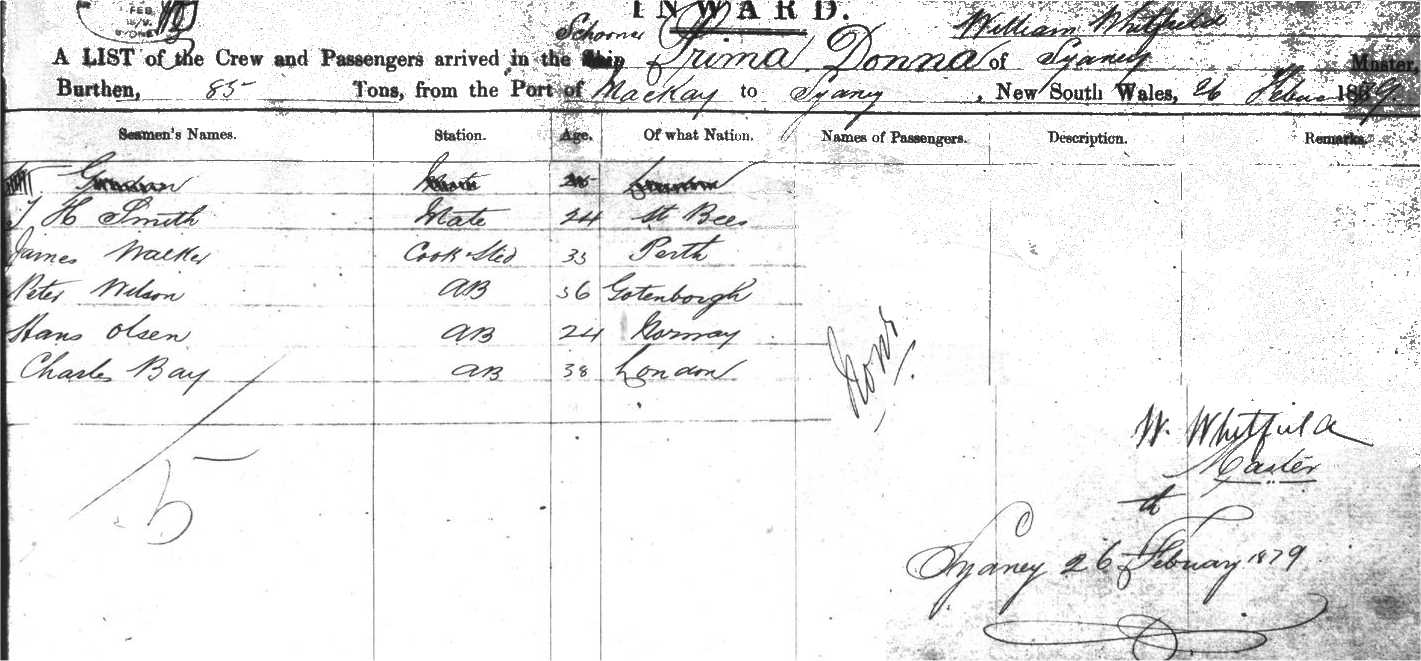 FEB
SYDNEY
INWARD.
Schooner William Whitfield
A LIST of the Crew and Passengers arrived in the Ship Prima Donna of Sydney Master,
Burthen, 85 Tons, from the Port of Mackay to Sydney, New South Wales, 26 1879
Seamen's Names. Station. Age. Of what Nation. Names of Passengers. Description. Remarks.
Mate
J H Smith Mate 24 St Bees
James Walker Cook & Sted 33 Perth
Peter Wilson AB 36 Gotenborgh
Hans Olsen AB 24 Norway
Charles Bay AB 38 London
None
5
W. Whitfield
Master
th
Sydney 26 Febuary 1879